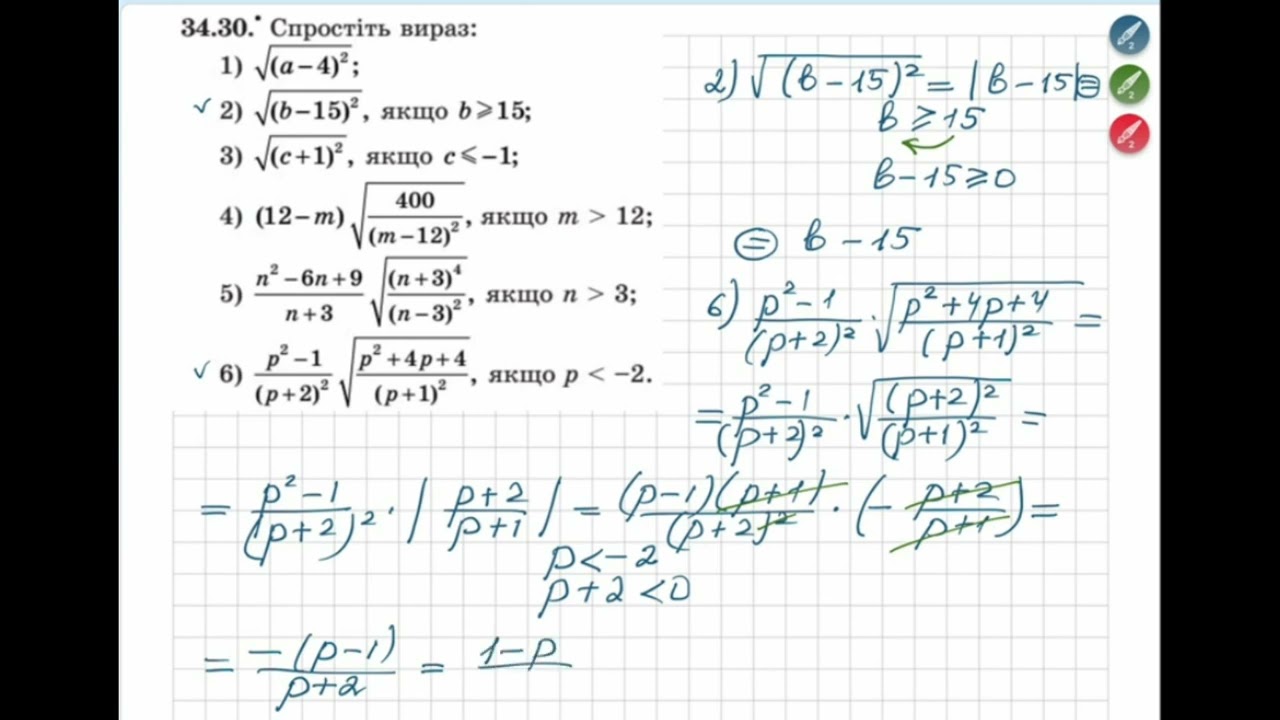 34.30.• Спростіть вираз:
1) √(a−4)²;
✓ 2) √(b−15)², якщо b⩾15;
3) √(c+1)², якщо c⩽−1;
4) (12−m) √(400/(m−12)²), якщо m > 12;
5) (n²−6n+9)/(n+3) √((n+3)⁴/(n−3)²), якщо n > 3;
✓ 6) (p²−1)/(p+2)² √((p²+4p+4)/(p+1)²), якщо p < −2.
2) √(b−15)² = |b−15| ⊜
b ⩾ 15
b−15⩾0
⊜ b−15
6) (p²−1)/(p+2)² · √((p²+4p+4)/(p+1)²) =
= (p²−1)/(p+2)² · √((p+2)²/(p+1)²) =
= (p²−1)/(p+2)² · |(p+2)/(p+1)| = (p−1)(p+1)/(p+2)² · (−(p+2)/(p+1)) =
p<−2
p+2<0
= −(p−1)/(p+2) = 1−p
2
2
2